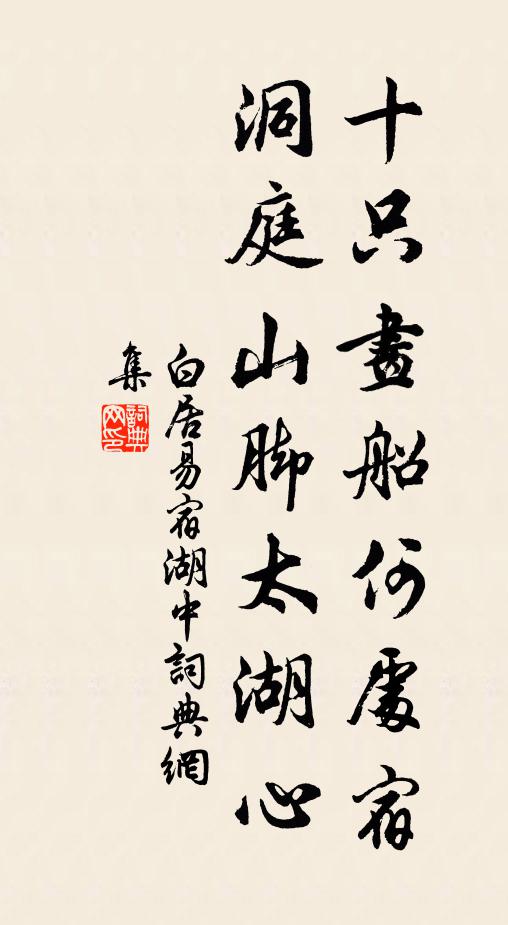 十只畫船何處宿
洞庭山脚太湖心
白居易宿湖中詞典網
集
詞典
网印